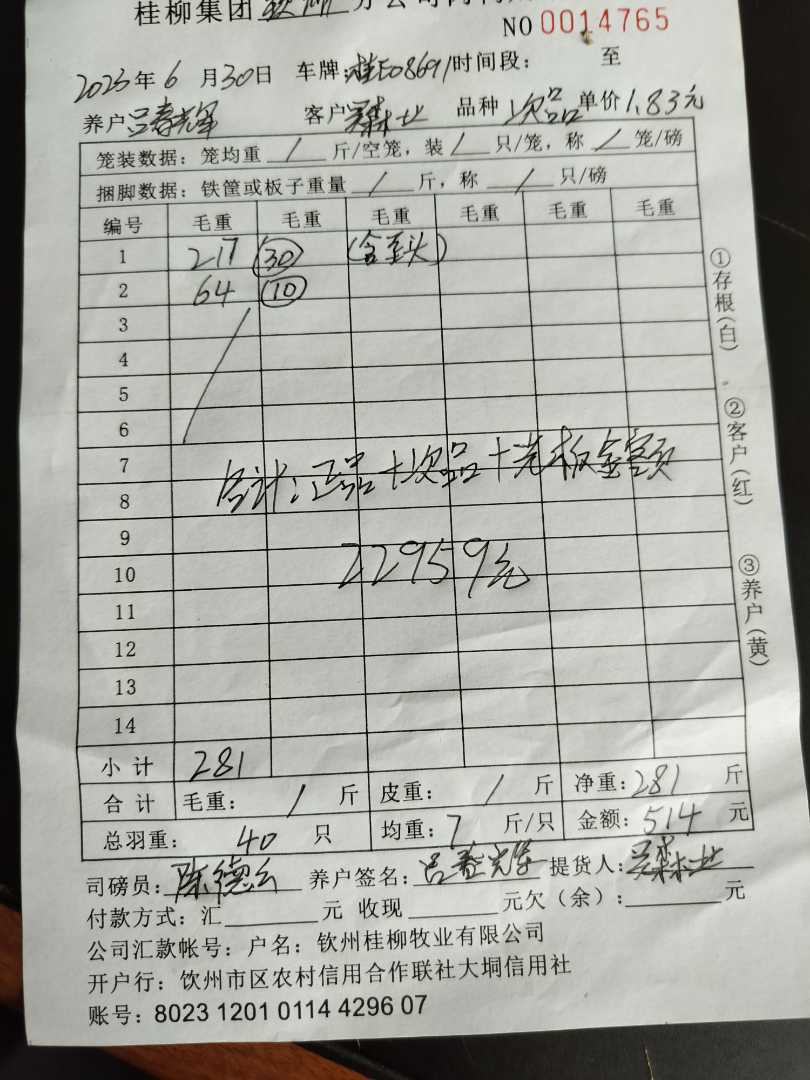 桂柳集团 钦州 分公司
NO 0014765
2023年6月30日 车牌:桂E08691 时间段: 至
养户 吕春辉 客户 吴森业 品种 次品 单价 1.83元
笼装数据: 笼均重 / 斤/空笼, 装 / 只/笼, 称 / 笼/磅
捆脚数据: 铁筐或板子重量 / 斤, 称 / 只/磅
编号 毛重 毛重 毛重 毛重 毛重 毛重
1 217 (30) (含至头)
2 64 (10)
3
4
5
6
7
合计:正品+次品+光板金额
8
9
10 22959元
11
12
13
14
小计 281
合计 毛重: / 斤 皮重: / 斤 净重: 281 斤
总羽重: 40 只 均重: 7 斤/只 金额: 514 元
司磅员: 陈德云 养户签名: 吕春辉 提货人: 吴森业
付款方式: 汇 元 收现 元欠(余): 元
公司汇款帐号: 户名: 钦州桂柳牧业有限公司
开户行: 钦州市区农村信用合作联社大垌信用社
账号: 8023 1201 0114 4296 07
①存根(白)
②客户(红)
③养户(黄)